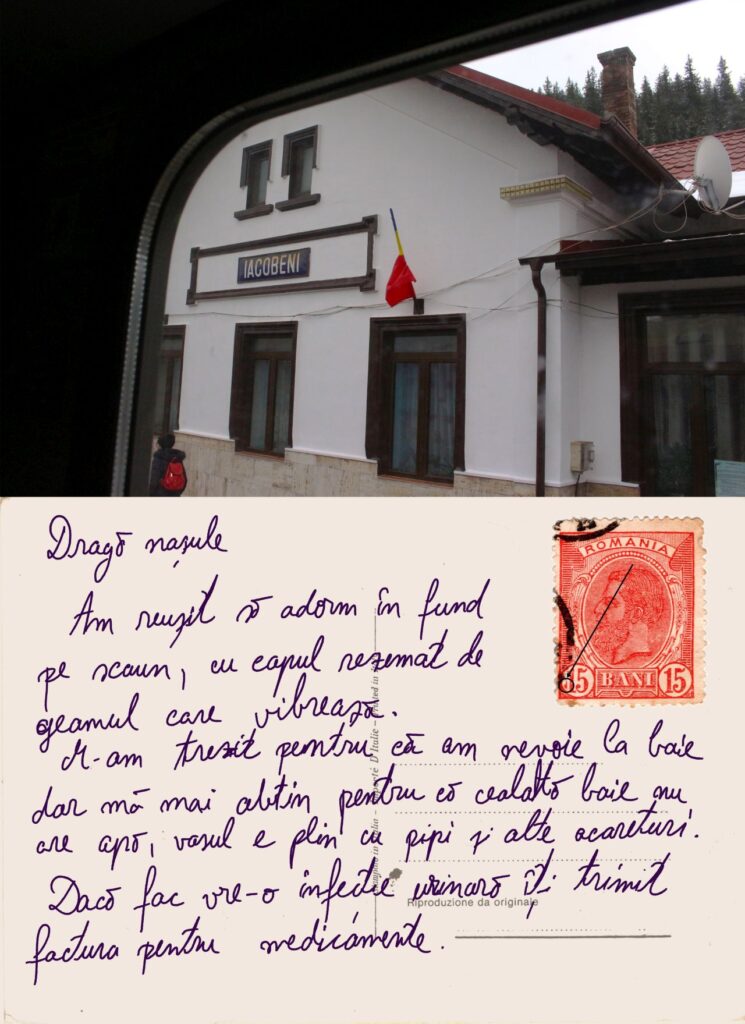 IACOBENI
Dragă nașule
ROMANIA
15 BANI 15
Am reușit să adorm în fund
pe scaun, cu capul rezemat de
geamul care vibrează.
M-am trezit pentru că am nevoie la baie
dar mă mai abțin pentru că cealaltă baie nu
are apă, vasul e plin cu pipi și alte acareturi.
Dacă fac vre-o infecție urinară îți trimit
factura pentru medicamente.
Riproduzione da originale